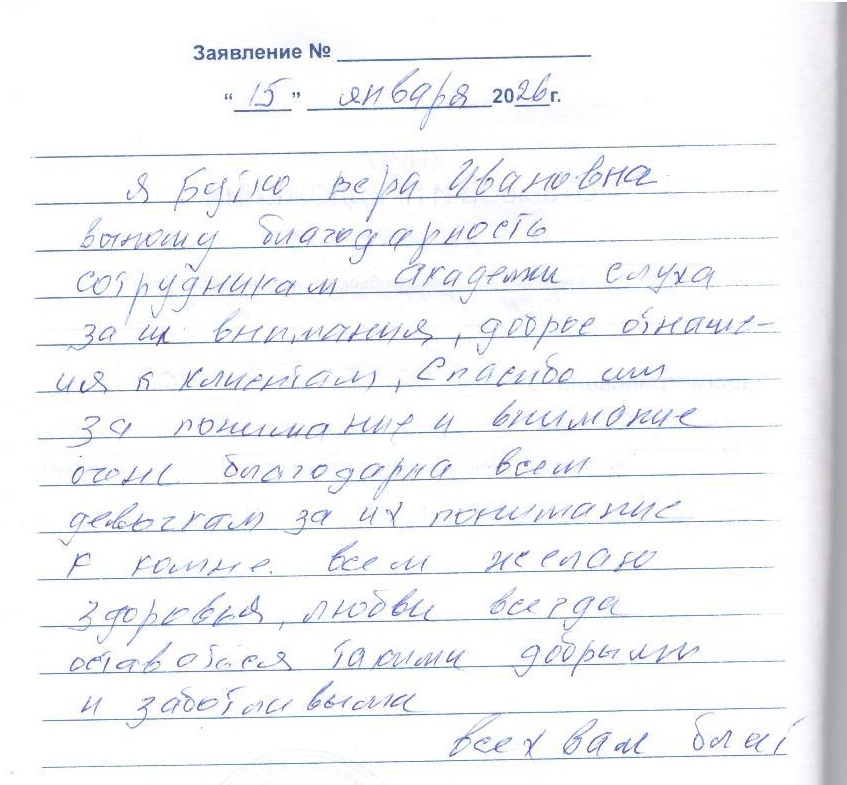 Заявление №
“ 15 ” января 2026 г.
я Бутко вера Ивановна
выношу благодарность
сотрудникам академии слуха
за их внимания, доброе отнаше-
ия к клиентам, Спасибо им
за понимание и внимание
очень благодарна всем
девычкам за их понимание
к комне. всем желаю
здоровья, любви всегда
оставатася такими добрыми
и заботливыми
всех вам благ